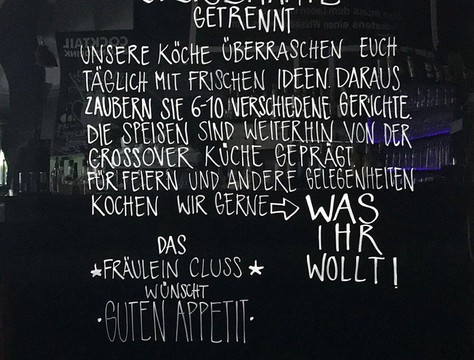 GETRENNT
UNSERE KÖCHE ÜBERRASCHEN EUCH
TÄGLICH MIT FRISCHEN IDEEN. DARAUS
ZAUBERN SIE 6-10 VERSCHIEDENE GERICHTE.
DIE SPEISEN SIND WEITERHIN VON DER
CROSSOVER KÜCHE GEPRÄGT.
FÜR FEIERN UND ANDERE GELEGENHEITEN
KOCHEN WIR GERNE ⇨ WAS
IHR
WOLLT!
DAS
★FRÄULEIN CLUSS★
WÜNSCHT
·GUTEN APPETIT·
COCKTAIL